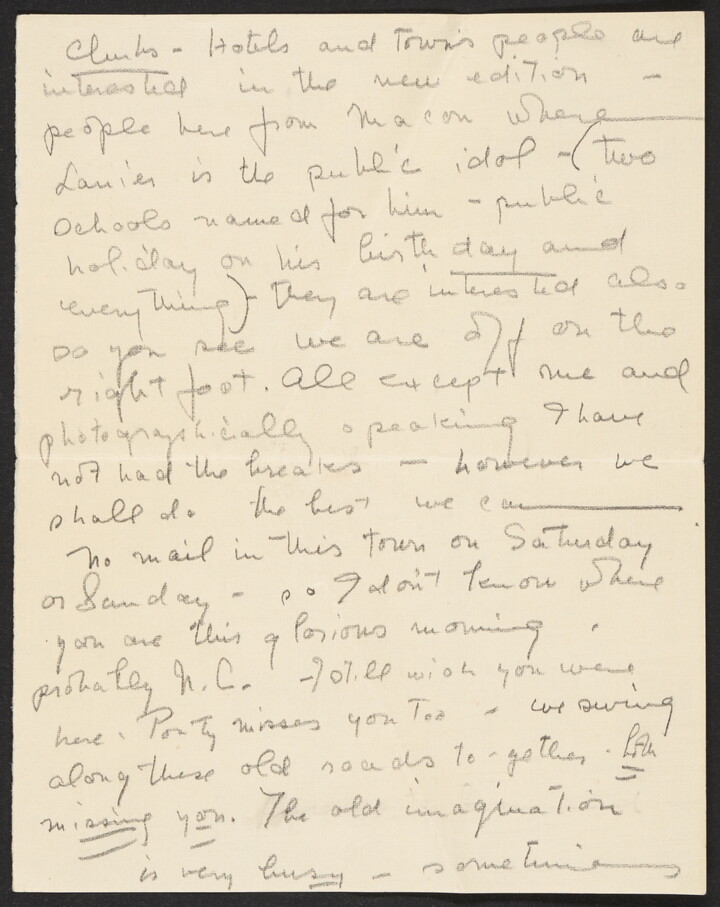 Clerks - Hotels and Towns people are
interested in the new edition -
people here from Macon where
Lanier is the public idol - (two
schools named for him - public
holiday on his birthday and
everything) - they are interested also
so you see we are off on the
right foot. All except me and
photographically speaking I have
not had the breaks - however we
shall do the best we can
No mail in this town on Saturday
or Sunday - so I don't know where
you are this glorious morning.
probably N.C. - I still wish you were
here. Ponty misses you too - we swing
along these old roads to-gether. both
missing you. The old imagination
is very busy - sometimes